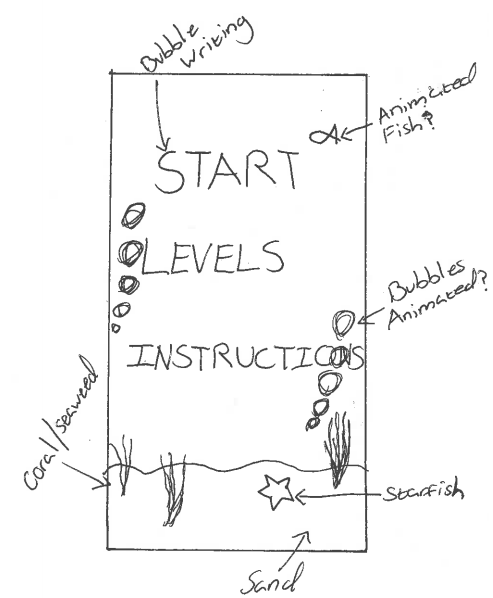 Bubble
Writing
Animated
Fish?
START
LEVELS
Bubbles
Animated?
INSTRUCTIONS
Coral/seaweed
Starfish
Sand